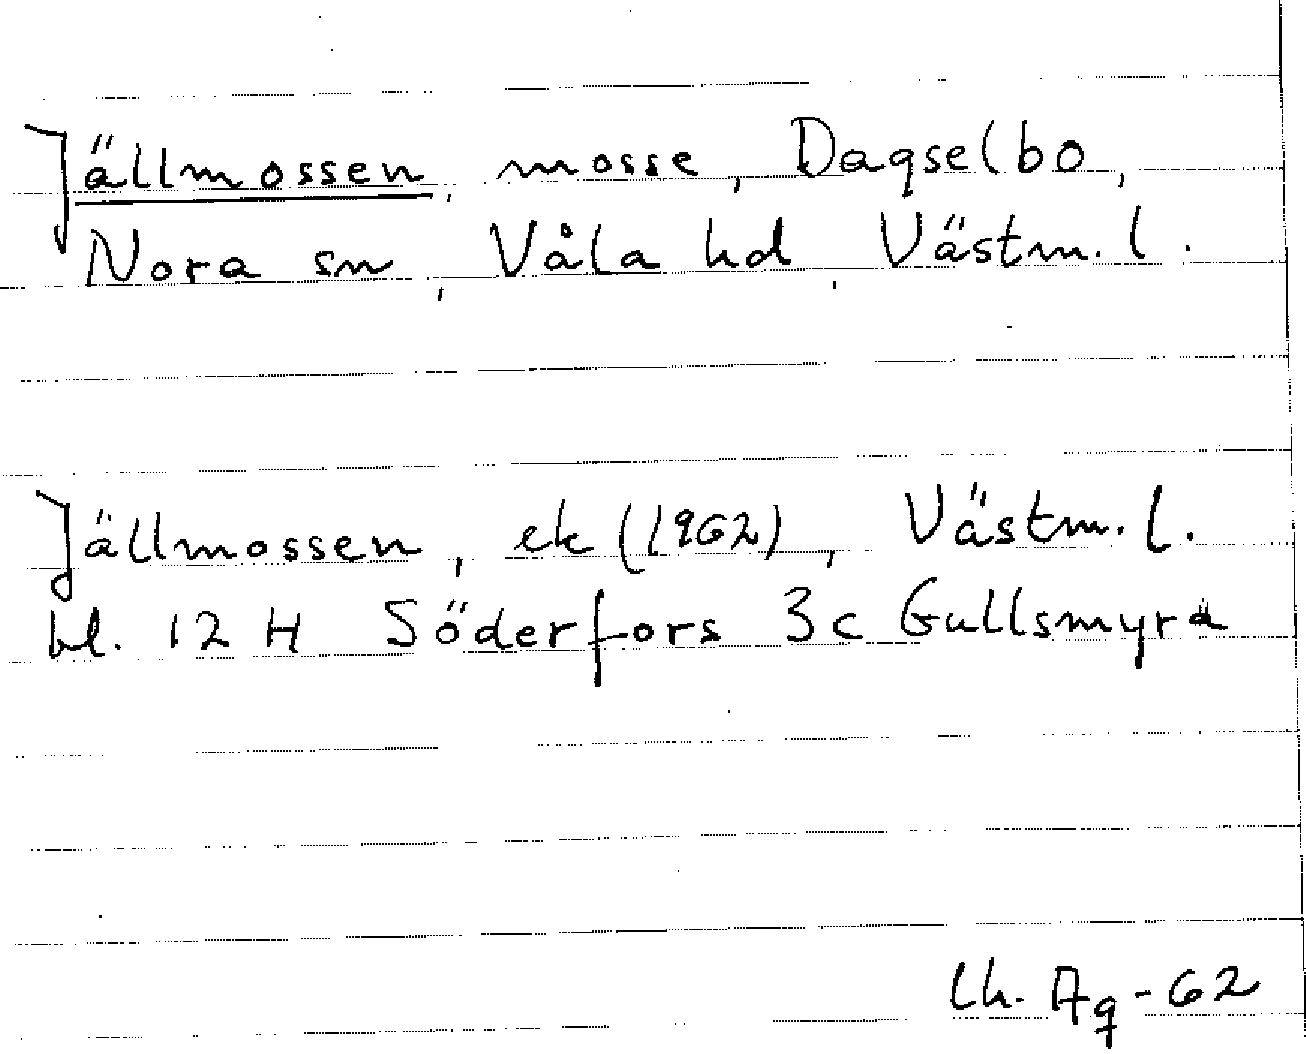 Jällmossen, mosse, Dagselbo,
Nora sn, Våla hd, Västm. l.
Jällmossen, ek (1962), Västm. l.
bl. 12 H Söderfors 3c Gullsmyra
lh. Ag - 62